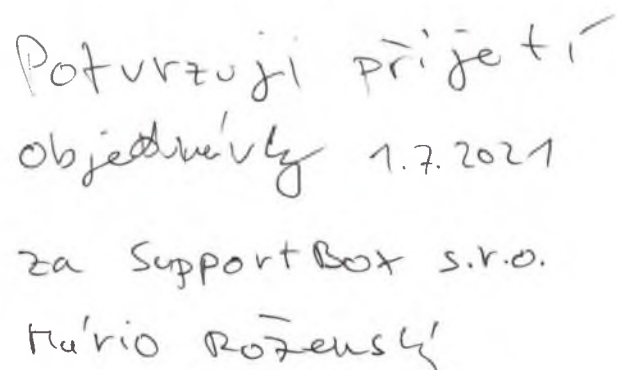 Potvrzuji přijetí
objednávky 1.7.2021
za SupportBox s.r.o.
Mário Roženský